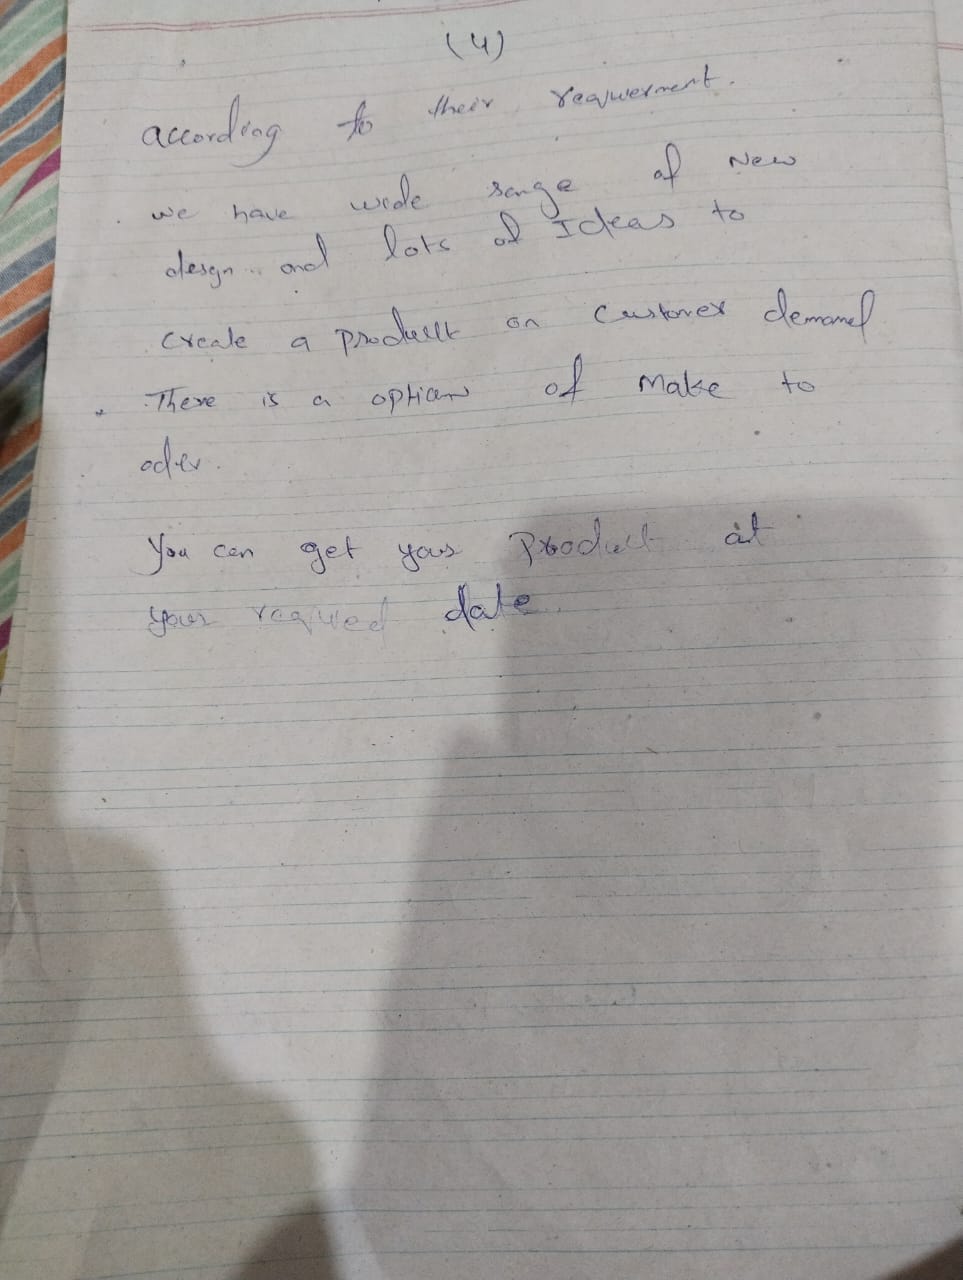 (4)
according to their requirement.
we have wide range of New
design and lots of Ideas to
create a product on customer demand
There is a option of Make to
oder.
You can get your Product at
your required date.